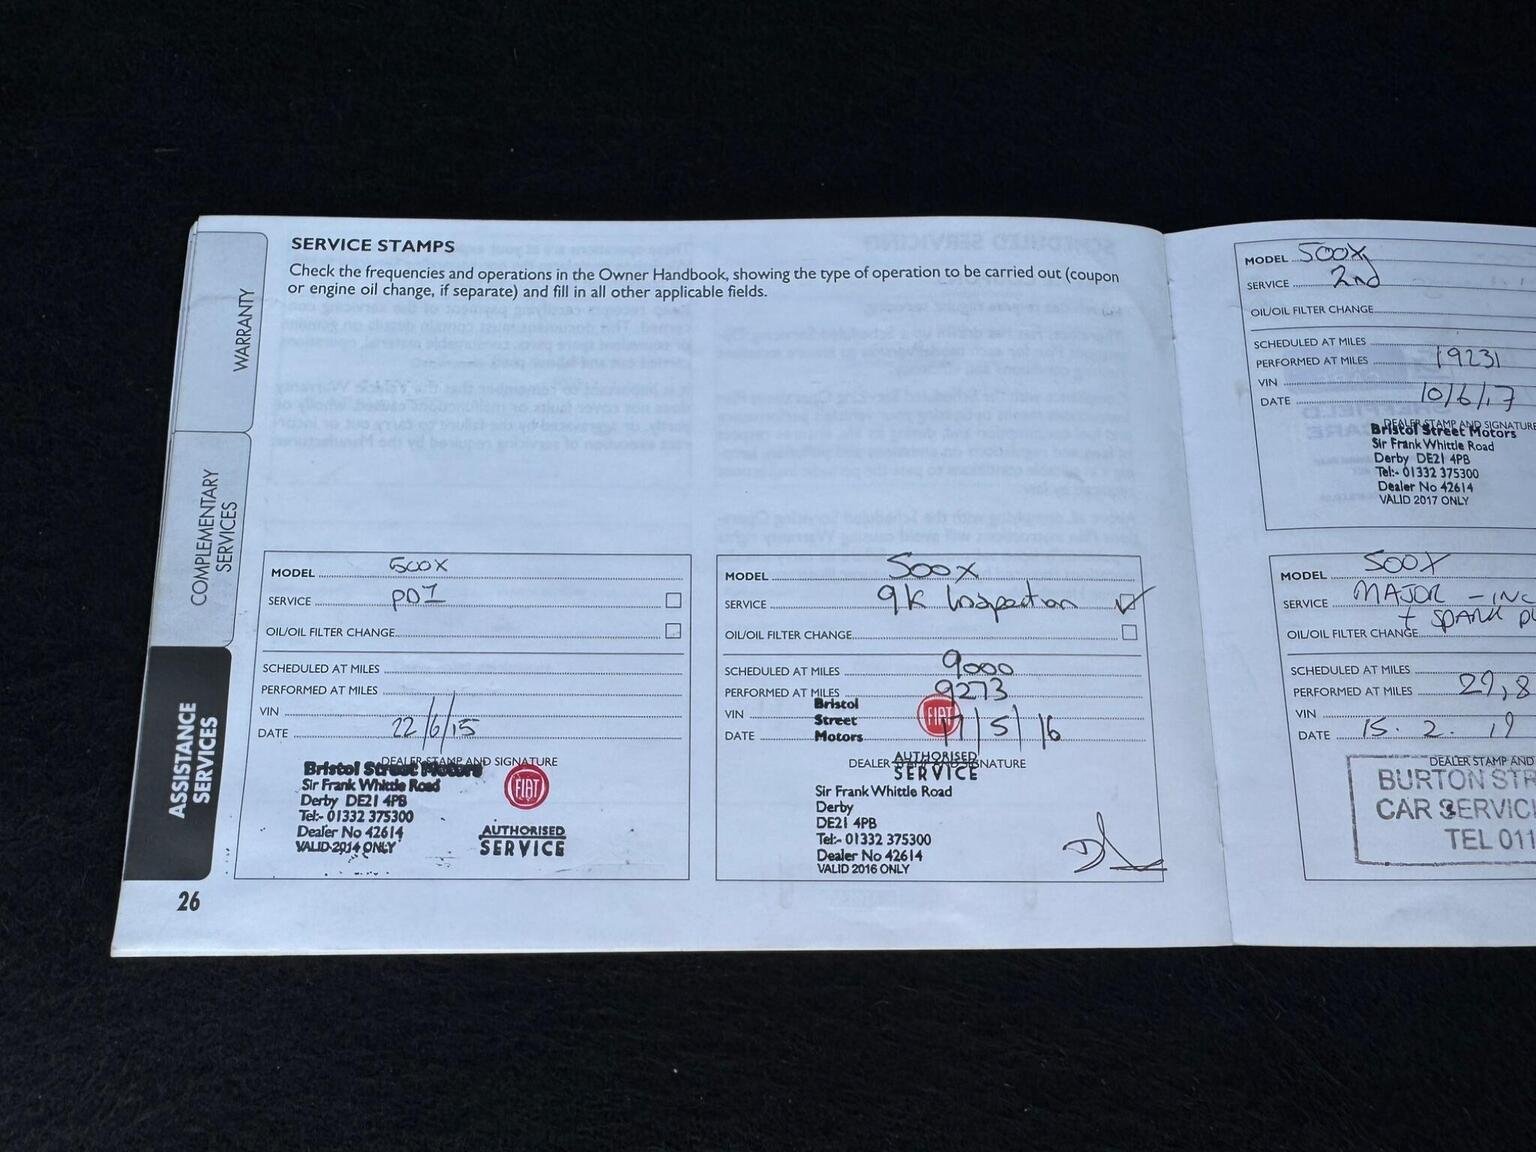 WARRANTY
COMPLEMENTARY
SERVICES
ASSISTANCE
SERVICES
SERVICE STAMPS
Check the frequencies and operations in the Owner Handbook, showing the type of operation to be carried out (coupon
or engine oil change, if separate) and fill in all other applicable fields.
MODEL 500X
SERVICE PDI
OIL/OIL FILTER CHANGE
SCHEDULED AT MILES
PERFORMED AT MILES
VIN
DATE 22/6/15
DEALER STAMP AND SIGNATURE
Bristol Street Motors
Sir Frank Whittle Road
Derby DE21 4PB
Tel:- 01332 375300
Dealer No 42614
VALID 2014 ONLY
FIAT
AUTHORISED
SERVICE
26
MODEL 500X
SERVICE 9K Inspection
OIL/OIL FILTER CHANGE
SCHEDULED AT MILES 9000
PERFORMED AT MILES 9273
VIN
DATE 17/5/16
Bristol
Street
Motors
FIAT
DEALER STAMP AND SIGNATURE
AUTHORISED
SERVICE
Sir Frank Whittle Road
Derby
DE21 4PB
Tel:- 01332 375300
Dealer No 42614
VALID 2016 ONLY
MODEL 500X
SERVICE 2nd
OIL/OIL FILTER CHANGE
SCHEDULED AT MILES
PERFORMED AT MILES 19231
VIN
DATE 10/6/17
DEALER STAMP AND SIGNATURE
Bristol Street Motors
Sir Frank Whittle Road
Derby DE21 4PB
Tel:- 01332 375300
Dealer No 42614
VALID 2017 ONLY
MODEL 500X
SERVICE MAJOR - INC
+ SPARK PL
OIL/OIL FILTER CHANGE
SCHEDULED AT MILES
PERFORMED AT MILES 29,8
VIN
DATE 15. 2. 19
DEALER STAMP AND
BURTON STR
CAR SERVIC
TEL 011